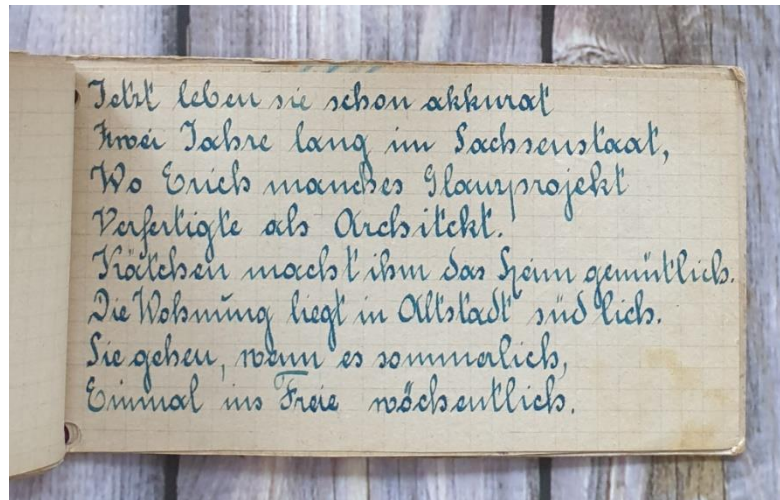 Jetzt leben sie schon akkurat
Zwei Jahre lang im Sachsenstaat,
Wo Erich manches Glanzprojekt
Verfertigte als Architekt.
Kätchen macht ihm das Heim gemütlich.
Die Wohnung liegt in Altstadt südlich.
Sie gehen, wenn es sommerlich,
Einmal ins Freie wöchentlich.